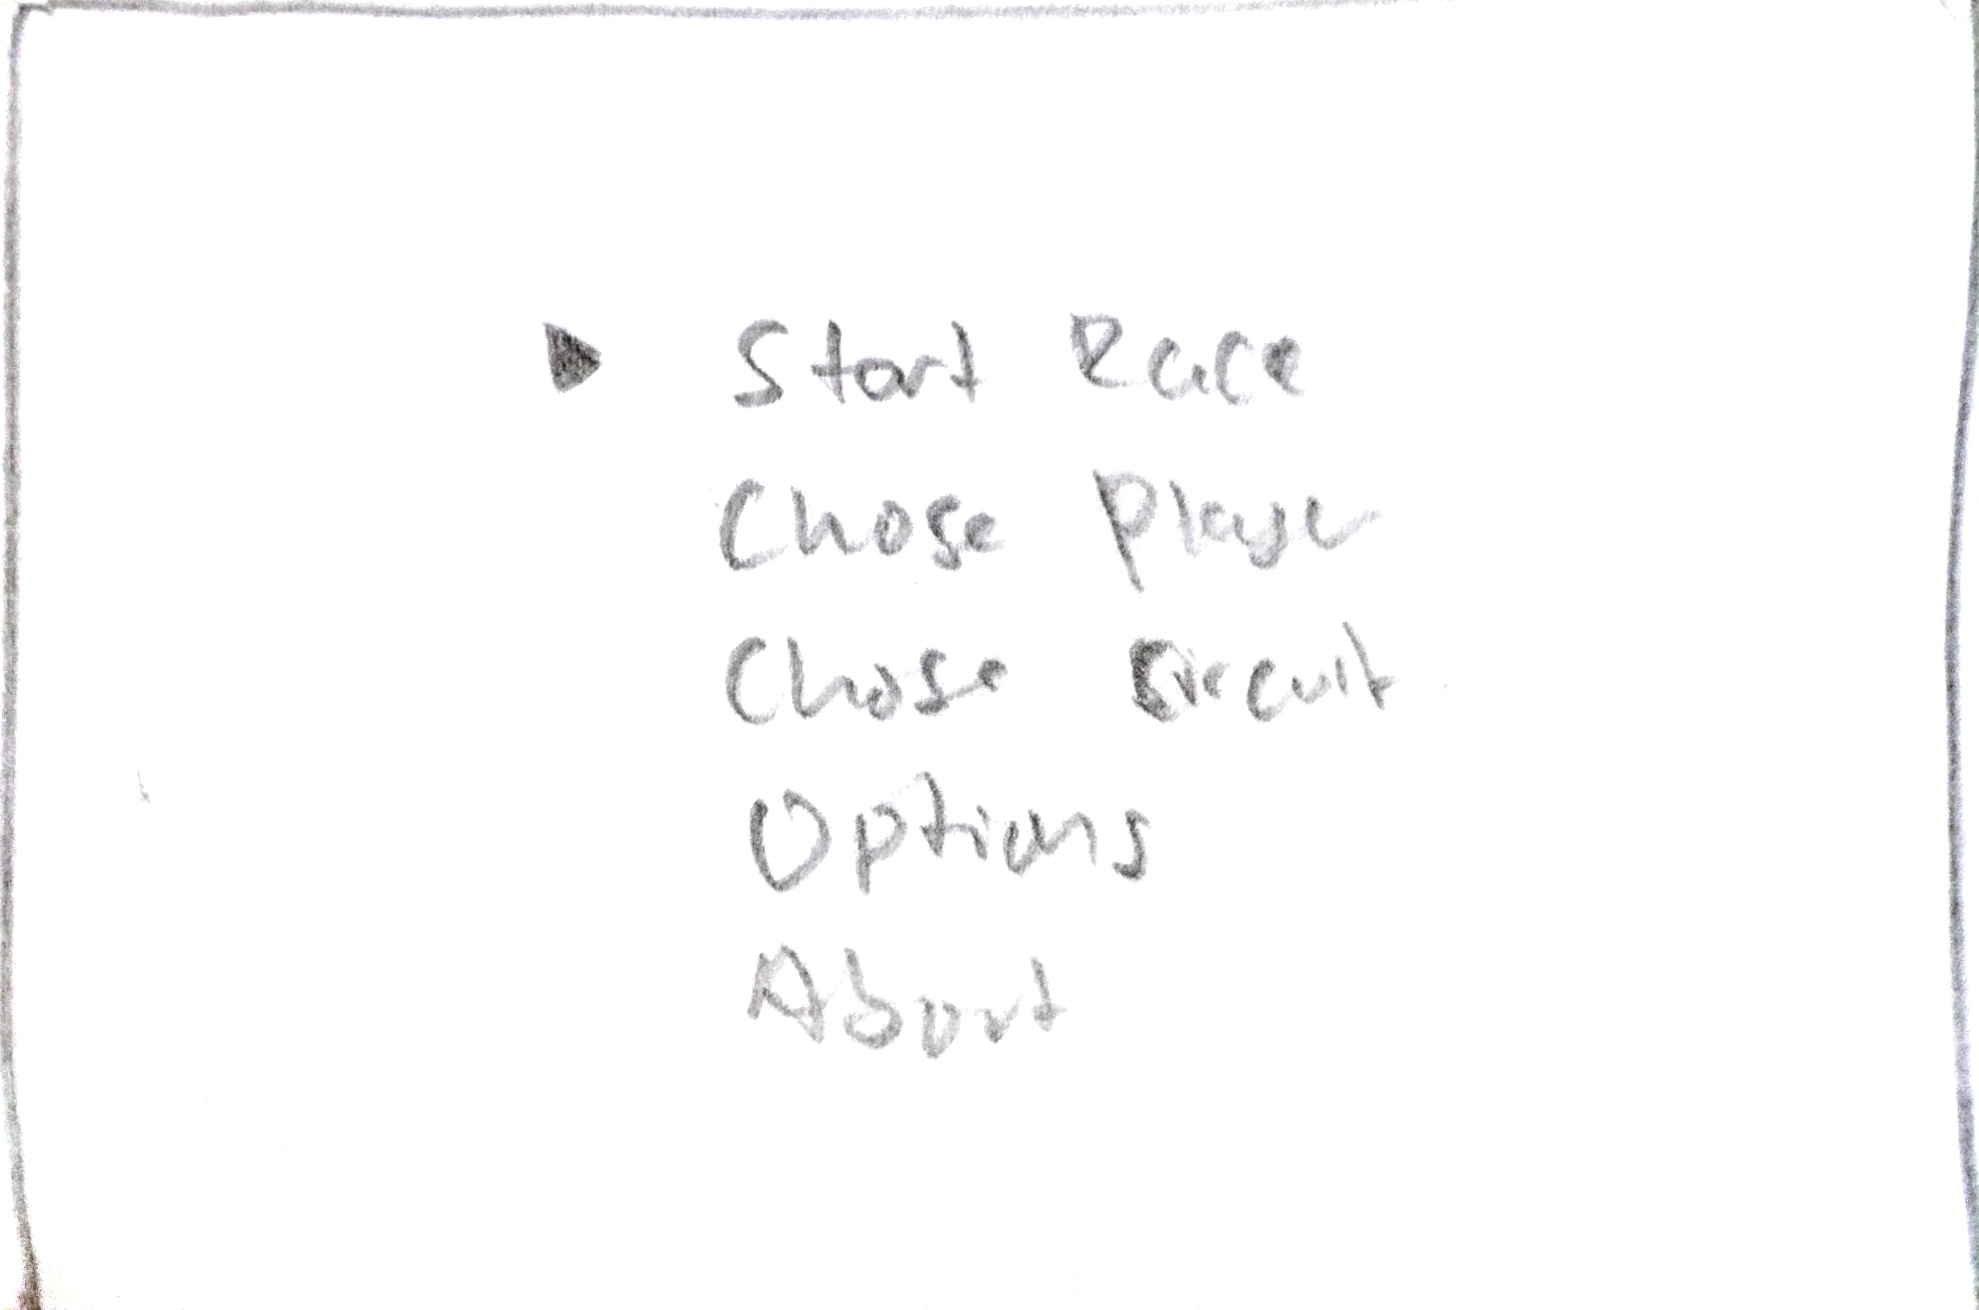 Start Race
Chose Player
Chose Circuit
Options
About